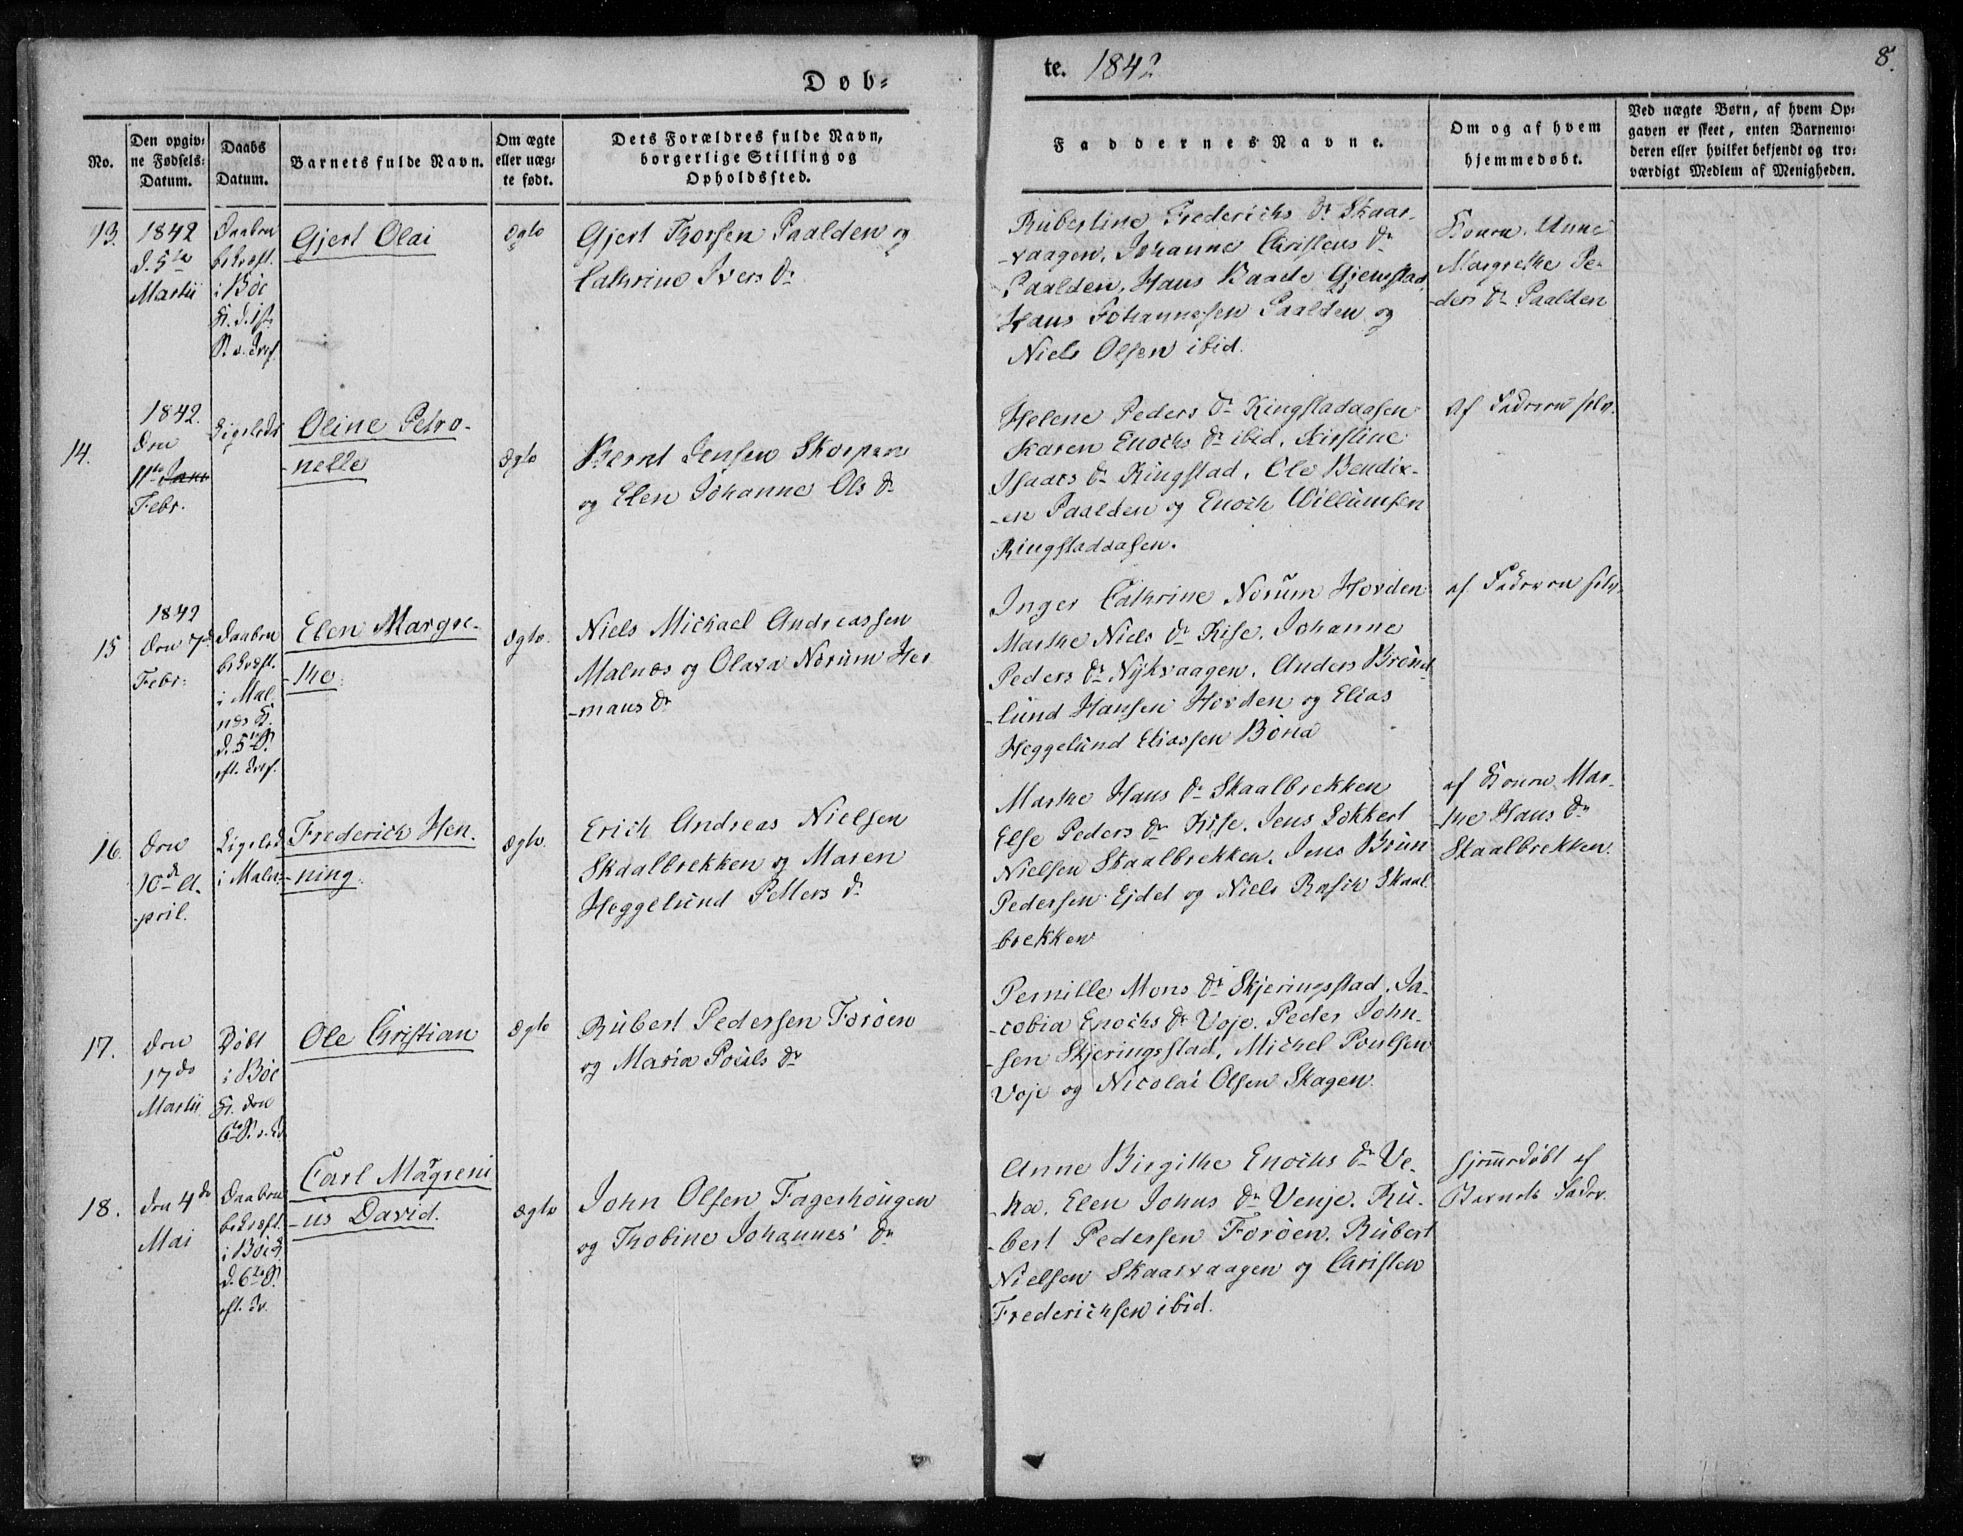 Døb=
te. 1842
8.
No.
Den opgiv=
ne Fødsels=
Datum.
Daabs
Datum.
Barnets fulde Navn.
Om ægte
eller uæg=
te født.
Dets Forældres fulde Navn,
borgerlige Stilling og
Opholdssted.
Faddernes Navne.
Om og af hvem
hjemmedøbt.
Ved uægte Børn, af hvem Op=
gaven er skeet, enten Barnemo=
deren eller hvilket bekjendt og tro=
værdigt Medlem af Menigheden.
13.
1842
d. 5te
Martii
Daaben
bekræft.
i Bøe
K. d. 1ste
Gjert Olai
Ægte
Gjert Thorsen Paalden og
Cathrine Ivers Dr
Rubertine Frederichs Dr Skaar-
-vaagen, Johanne Christens Dr
Paalden, Hans Baade Gjemstad,
Hans Johannesen Paalden og
Niels Olsen ibid.
Konen Anne
Margrethe Pe-
-ders Dr Paalden
14.
1842.
den
11te Janr
Febr.
Ligeledes
Oline Petro-
-nelle
Ægte
Bernt Jensen Skorpen
og Elen Johanne Ols Dr
Helene Peders Dr Ringstadaasen
Karen Enochs Dr ibid, Kirstine
Isaacs Dr Ringstad, Ole Bendix-
-en Paalden og Enoch Willumsen
Ringstadaasen.
af Faderen selv.
15
1842
den 7de
Febr:
Daaben
bekræft.
i Mal-
næs K.
d. 5te S.
eft. Tref.
Elen Margre-
-the
Ægte.
Niels Michael Andreassen
Malnæs og Olava Norum Her
-mans Dr
Inger Cathrine Norum Hovden
Marthe Niels Dr Rise, Johanne
Peders Dr Nykvaagen, Anders Brønd
-lund Hansen Hovden og Elias
Heggelund Eliassen Bøna
af Faderen selv.
16.
den
10de A-
-pril.
Ligeled
i Maln:
Frederich Hen-
-ning
Ægte.
Erich Andreas Nielsen
Skaalbrekken og Maren
Heggelund Petters Dr
Marthe Hans Dr Skaalbrekken
Else Peders Dr Rise, Jens Lokkert
Nielsen Skaalbrekken, Jens Brun
Pedersen Ejdet og Niels Rasch Skaal
brekken
af Konen Mar-
-the Hans Dr
Skaalbrekken.
17.
den
17de
Martii
Døbt
i Bøe
K. den
Ole Christian
Ægte
Rubert Pedersen Forøen
og Maria Pouls Dr
Pernille Mons Dr Skjeringsstad, Ja-
-cobia Enochs Dr Voje, Peder John-
-sen Skjeringsstad, Michel Poulsen
Voje og Nicolai Olsen Skagen.
18.
den 4de
Mai
Daaben
bekræft.
i Bøe K.
d. 6te S.
Carl Magreni
-us David.
Ægte
John Olsen Fagerhougen
og Thobine Johannes' Dr
Anne Birgithe Enochs Dr Ve-
-ka, Elen Johns Dr Venje, Ru-
-bert Pedersen Forøen, Rubert
Nielsen Skaarvaagen og Christen
Frederichsen ibid.
hjemmedøbt af
Barnets Fader.